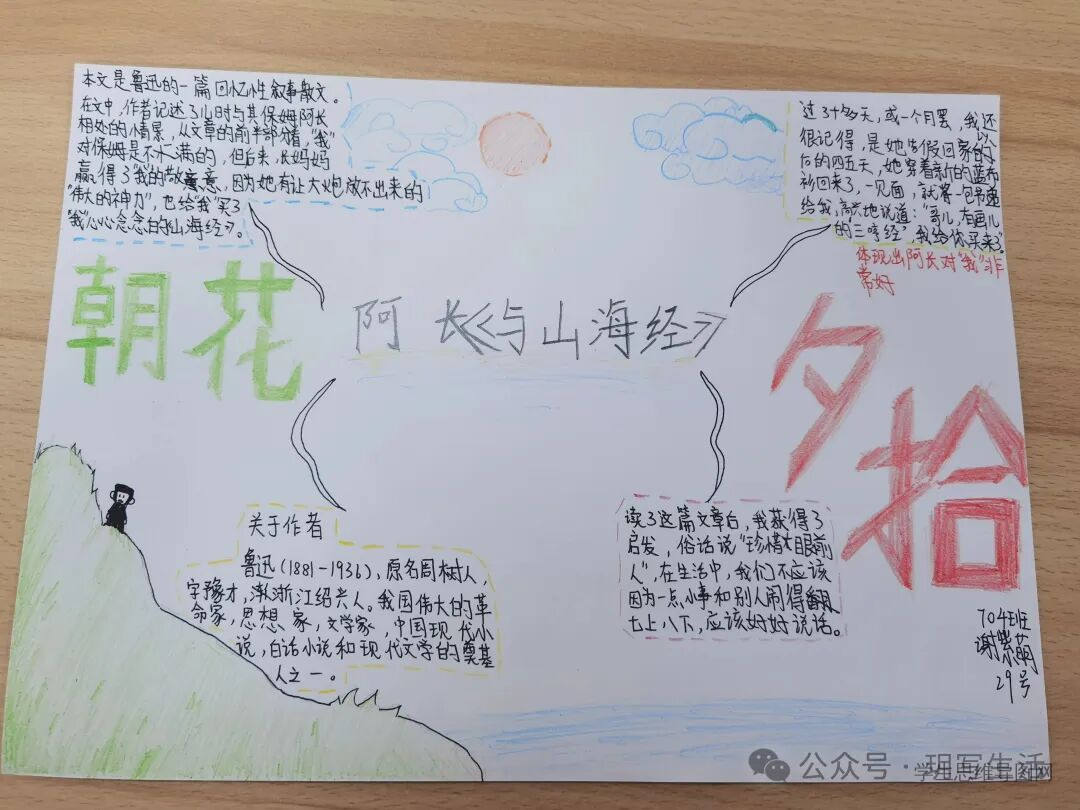 本文是鲁迅的一篇回忆性叙事散文。
在文中,作者记述了儿时与其保姆阿长
相处的情景,从文章的前半部分看,"我"
对保姆是不大满的,但后来,长妈妈
赢得了"我"的敬意,因为她有让大炮放不出来的
"伟大的神力",也给"我"买了
"我"心心念念的《山海经》。
过了十多天,或一个月罢,我还
很记得,是她告假回家以
后的四五天,她穿着新的蓝布
衫回来了,一见面,就将一包书递
给我,高兴地说道:"哥儿,有画儿
的'三哼经',我给你买来了"
体现出阿长对"我"非
常好
朝花
阿长《与山海经》
夕拾
关于作者
鲁迅(1881-1936),原名周树人,
字豫才,浙江绍兴人。我国伟大的革
命家,思想家,文学家,中国现代小
说,白话小说和现代文学的奠基
人之一。
读了这篇文章后,我获得了
启发,俗话说"珍惜眼前
人",在生活中,我们不应该
因为一点小事和别人闹得
七上八下,应该好好说话。
704班
谢紫萌
29号
公众号·玥写生活
学生思维导图网